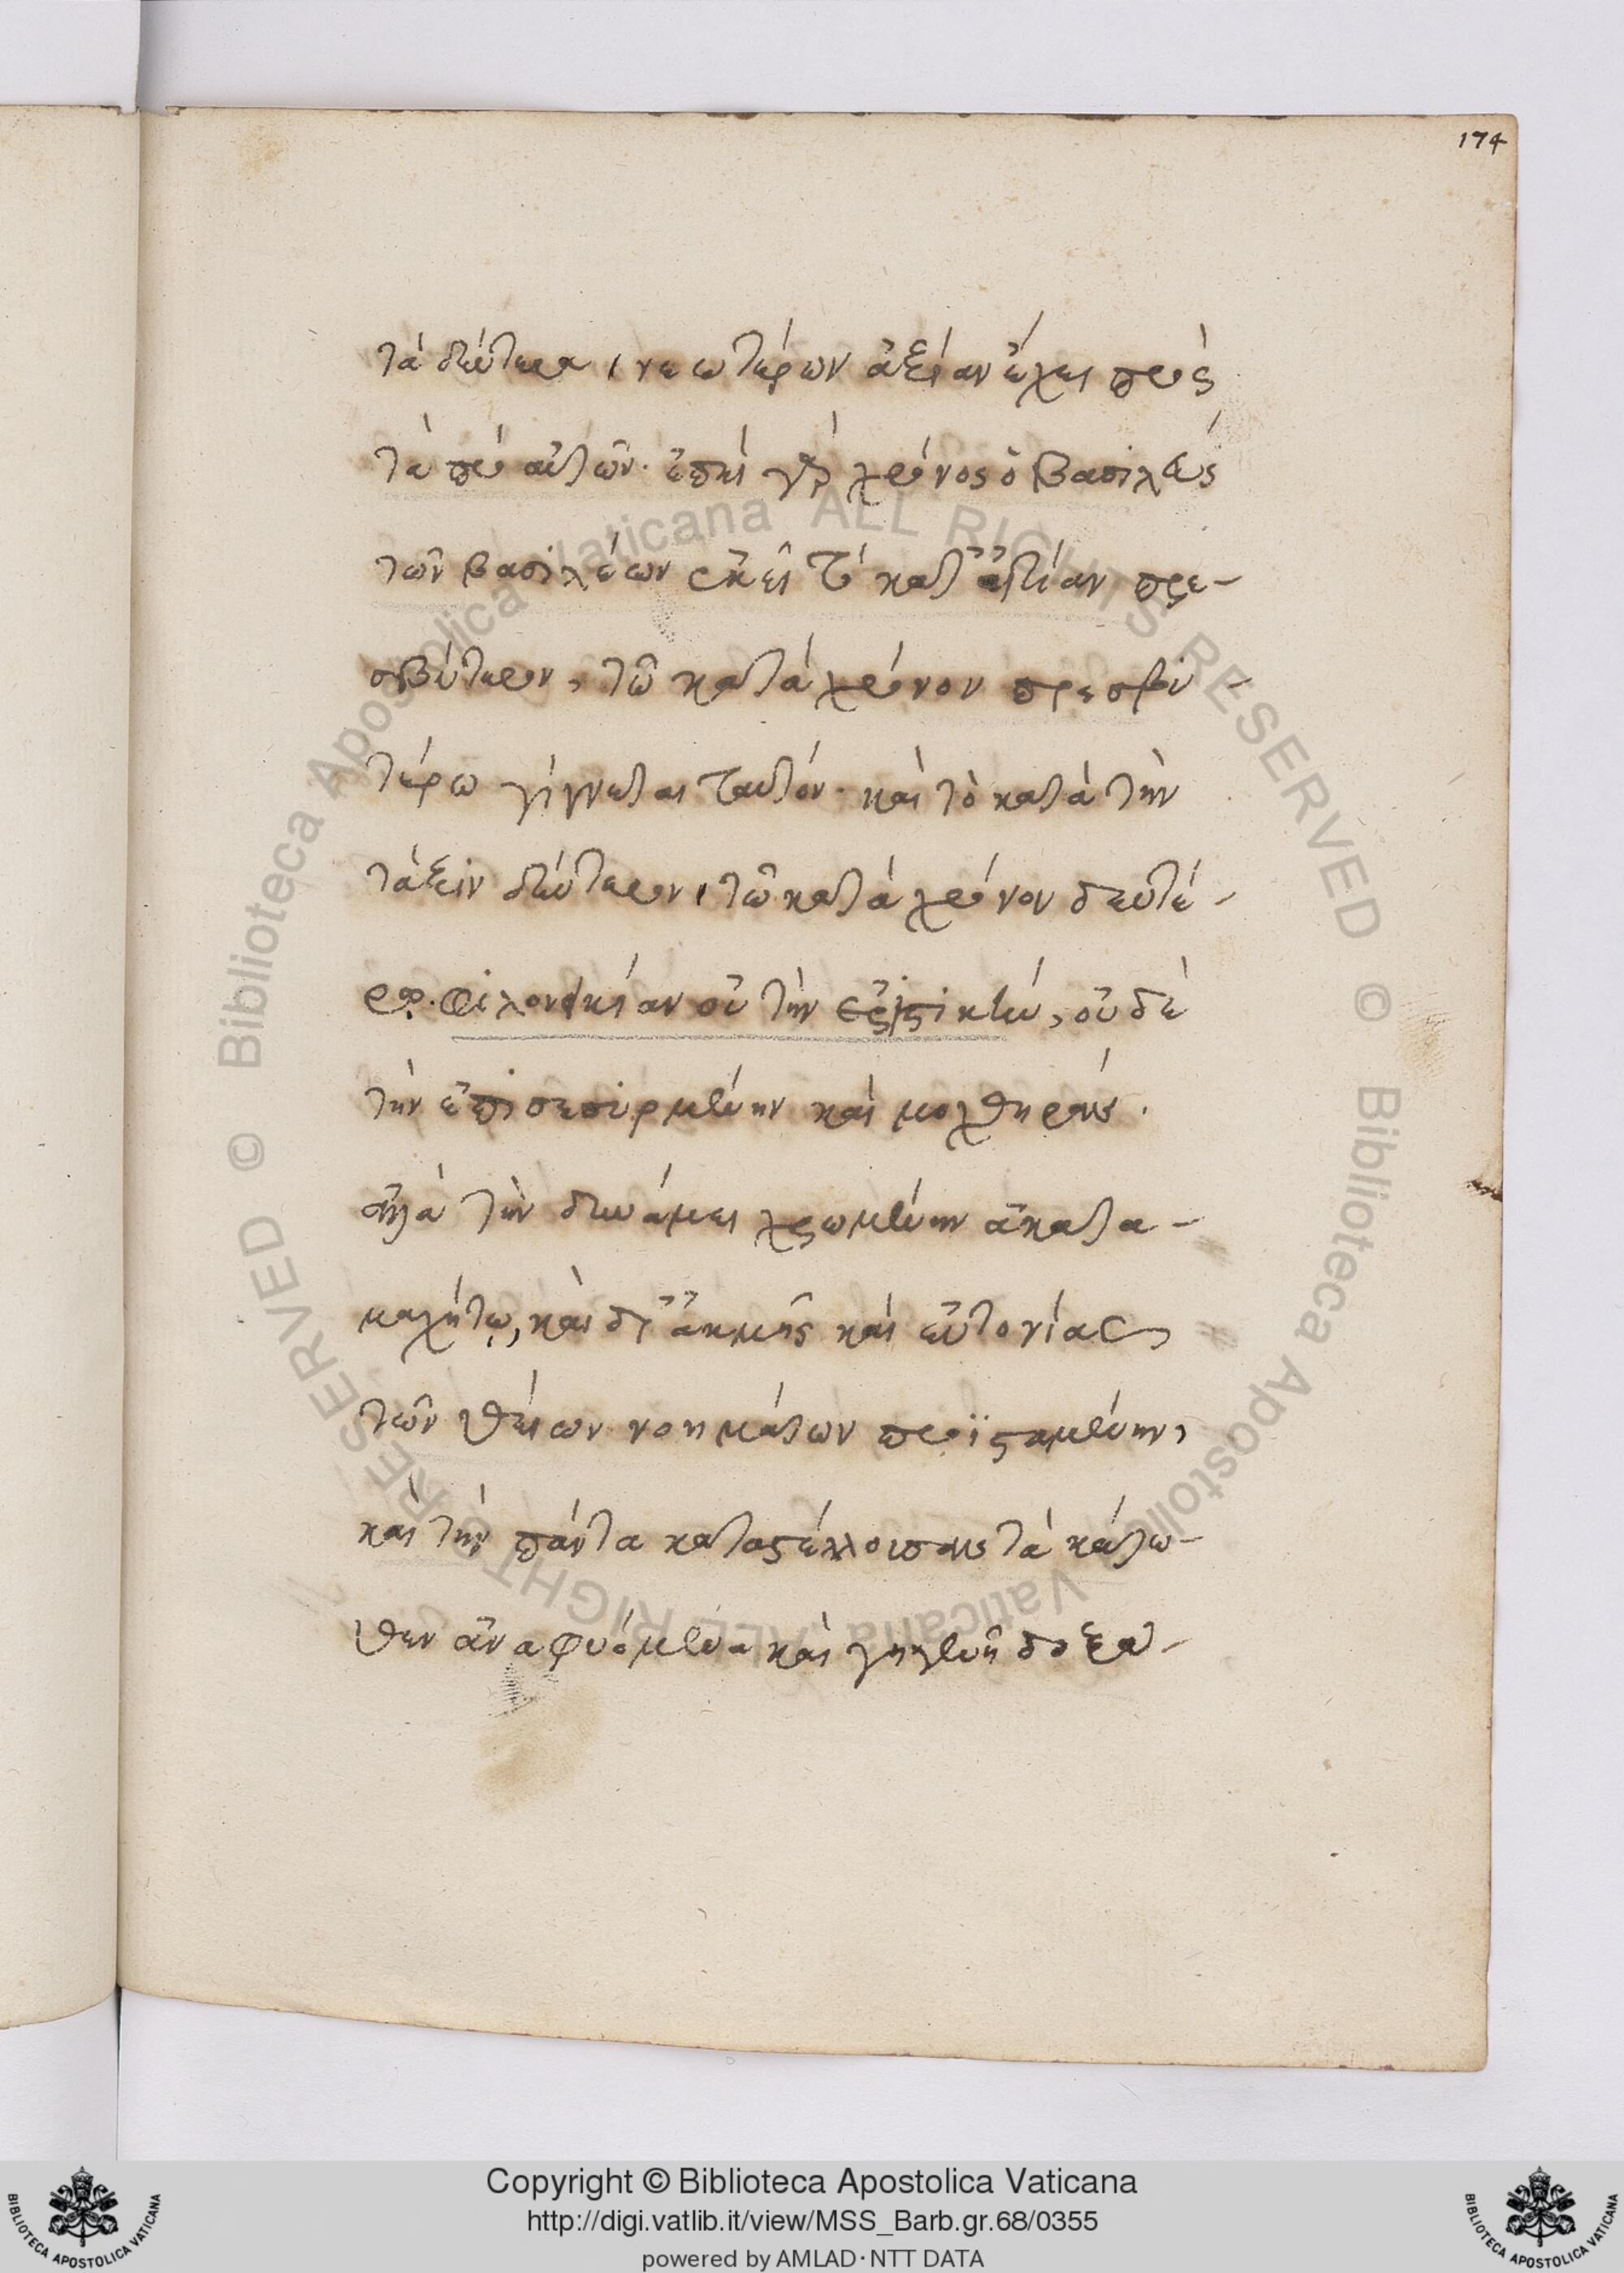 174
τὰ δεύτερα, νεωτέρων ἀξίαν ἔχει πρὸς
τὰ πρὸ αὐτῶν· ἐπεὶ γὰρ χρόνος ὁ βασιλεὺς
τῶν βασιλέων ἐκεῖ τὸ κατ' αἰτίαν πρε-
σβύτερον, τῶ κατὰ χρόνον πρεσβυ-
τέρω γίγνεται ταυτόν· καὶ τὸ κατὰ τὴν
τάξιν δεύτερον, τῶ κατὰ χρόνον δευτέ-
ρῳ. φιλονεικίαν οὐ τὴν ἐριστικὴν, οὐδὲ
τὴν ἐπισεσυρμένην καὶ μοχθηράν·
ἀλλὰ τὴν δυνάμει χρωμένην ἀκατα-
μαχήτῳ, καὶ δι' ἀκμῆς καὶ εὐτονίας
τῶν θείων νοημάτων προϊσταμένην,
καὶ τὴν πάντα καταστέλλουσαν τὰ κάτω-
θεν ἀναφυόμενα καὶ γηγενῆ δοξα-
Copyright © Biblioteca Apostolica Vaticana
http://digi.vatlib.it/view/MSS_Barb.gr.68/0355
powered by AMLAD·NTT DATA
BIBLIOTECA APOSTOLICA VATICANA
BIBLIOTECA APOSTOLICA VATICANA
© Biblioteca Apostolica Vaticana ALL RIGHTS RESERVED
© Biblioteca Apostolica Vaticana ALL RIGHTS RESERVED